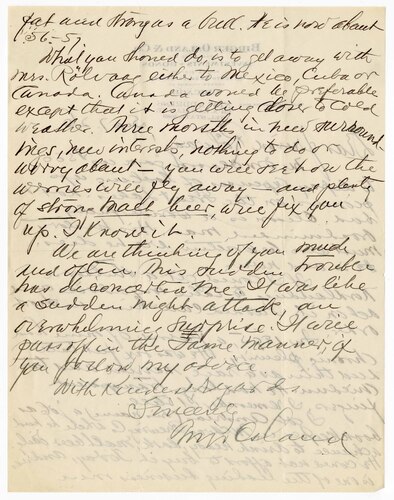 fat and strong as a bull. He is now about
56-57
What you should do, is to get away with
Mrs. Rölvaag either to Mexico, Cuba or
Canada. Canada would be preferable
except that it is getting closer to cold
weather. Three months in new surround-
ings, new interests, nothing to do or
worry about — you will see how the
worries will fly away — and plenty
of strong malt beer, will fix you
up. I know it.
We are thinking of you much
and often. This sudden trouble
has disconcerted me. It was like
a sudden night attack, an
overwhelming surprise. It will
pass off in the same manner, if
you follow my advice
With kindest regards
Sincerely